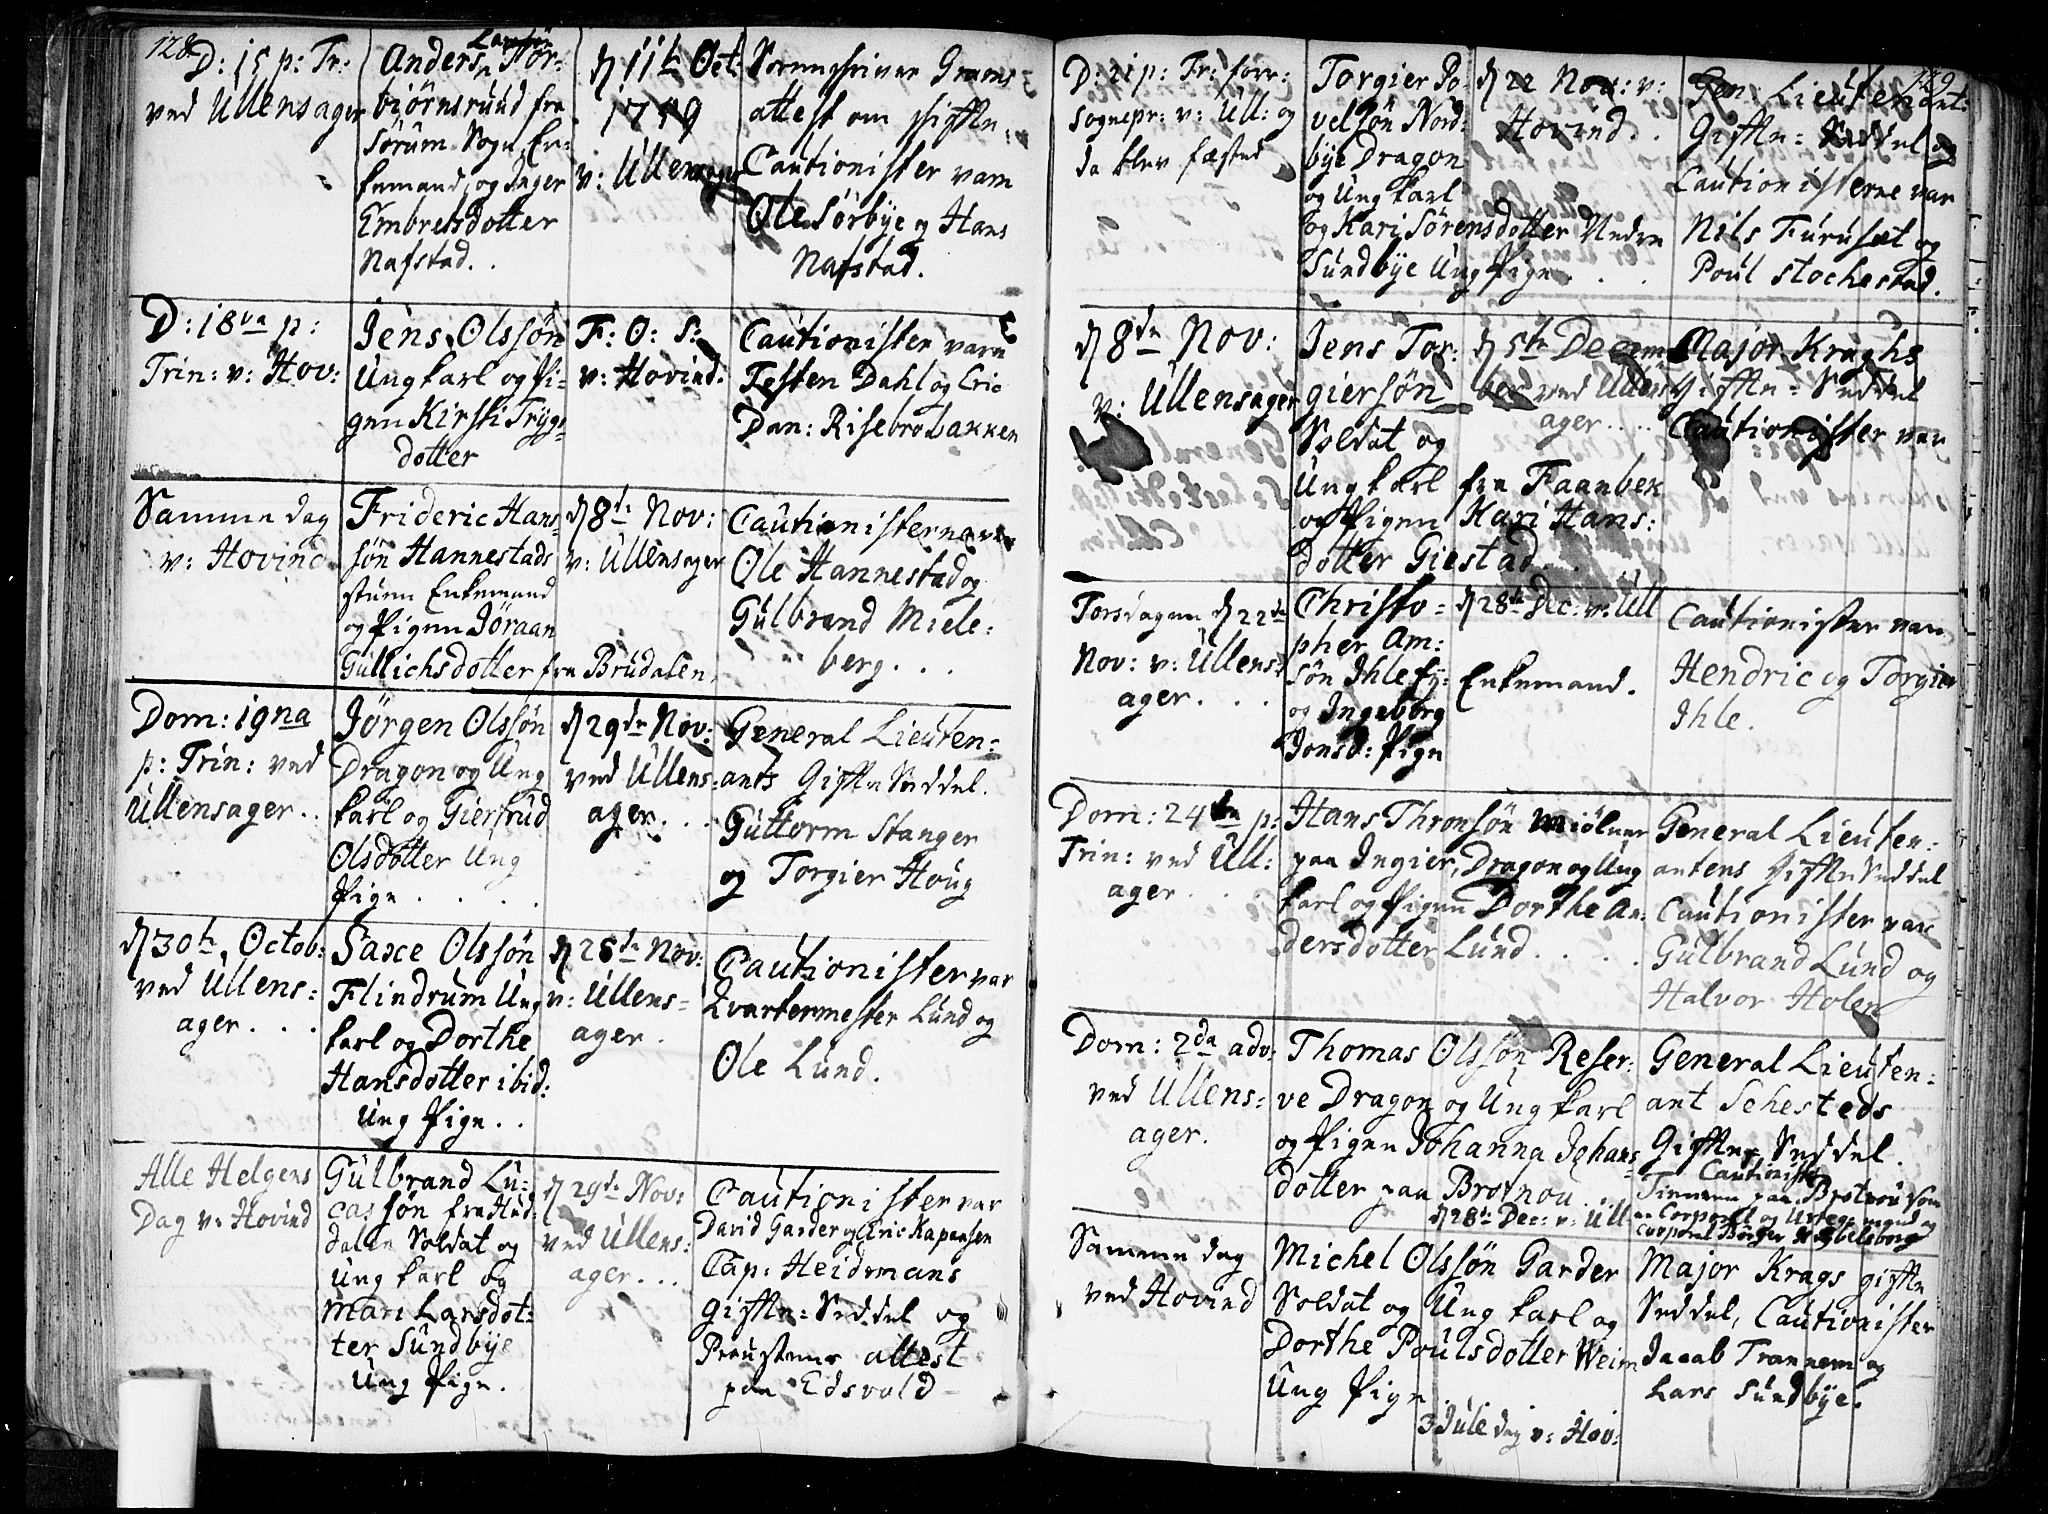 128.
D: 15 p: Tr:
ved Ullensager
Anders Larssøn Tor-
biørnsruud fra
Sørum Sogn En-
kemand, og Inger
Embretsdotter
Nafstad. .
d 11te Oct
1749
v: Ullensager
Sorenskriver Grams
attest om skifte,
Cautionister vare
Ole Sørbye og Hans
Nafstad.
D: 18va p:
Trin: v: Hov:
Jens Olssøn
Ungkarl og Pi-
gen Kirsti Trygs-
dotter
F: O: S:
v: Hovind.
Cautionister vare
Testen Dahl og Eric
Dan: Risebrobakken
Samme dag
v: Hovind
Frideric Hans-
søn Hannestads
stuen Enkemand
og Pigen Jøraan
Gullichsdotter fra Brudalen.
d 8de Nov:
v: Ullensager
Cautionisterne var
Ole Hannestad og
Gulbrand Miele-
berg. . .
Dom: 19na
p: Trin: ved
Ullensager. .
Jørgen Olssøn
Dragon og Ung
karl og Giertrud
Olsdotter Ung
Pige . . . .
d 29de Nov:
ved Ullens-
ager. . .
General Lieuten-
ants Gifte Seddel.
Guttorm Stanger
og Torgier Houg
d 30te Octob:
ved Ullens-
ager. . .
Saxe Olssøn
Flindrum Ung
karl og Dorthe
Hansdotter ibid:
Ung Pige. .
d 28de Nov:
v: Ullens-
ager.
Cautionister var
Qvartermester Lund og
Ole Lund.
Alle Helgens
Dag v: Hovind
Gulbrand Lu-
cassøn fra Hud-
dalen Soldat og
Ung karl og
Mari Larsdot-
ter Sundbye
Ung Pige.
d 29de Nov:
ved Ullens-
ager. . .
Cautionister var
David Garder og Eric Kapansen
Cap: Heidemans
Gifte-Seddel og
Proustens attest
paa Edsvold
129
D: 21 p: Tr: forr:
Sognepr: v: Ull: og
da blev fæsted
Torgier Po-
velsøn Nord-
bye Dragon
og Ung karl
og Kari Sørensdotter Nedre
Sundbye Ung Pige . . .
d 22 Nov: v:
Hovind. .
Gen: Lieutenant:
Gifte-Seddel og
Cautionisterne var
Nils Furuset og
Poul Stochestad.
d 8de Nov:
v: Ullensager
Jens Tor-
giersøn
Soldat og
Ungkarl fra Faanbek
og Pigen Kari Hans-
dotter Giestad. .
d 5te Decem-
ber ved Ullens-
ager . . .
Major Kraghs
Gifte-Seddel
Cautionister var
Torsdagen d 22de
Nov: v: Ullens-
ager. . .
Christo-
pher Am-
søn Ihle
og Ingeborg
Jonsd: Pige
d 28de Dec: v: Ull
Enkemand.
Cautionister var
Hendric og Torgier
Ihle.
Dom: 24ta p:
Trin: ved Ull:
ager . .
Hans Thronsøn Miølner
paa Ingier, Dragon og Ung
karl og Pigen Dorthe An-
dersdotter Lund . . . .
General Lieuten-
antens Gifte Seddel
Cautionister var
Gulbrand Lund og
Halvor Holen
Dom: 2da adv:
ved Ullens-
ager.
Thomas Olssøn Reser-
ve Dragon og Ung karl
og Pigen Johanna Johans-
dotter paa Brotnou . . .
d 28de Dec: v: Ull
General Lieuten-
ant Sehesteds
Gifte-Seddel.
Cautionister
paa Brotnou som
Corporal og
Corporal Børger
Samme dag
ved Hovind
Michel Olssøn Garder
Soldat og Ung karl og
Dorthe Poulsdotter Weim
Ung Pige
3 Juledag v: Hov:
Major Krags gifte
Seddel, Cautionister
Jacob Trannem og
Lars Sundbye.